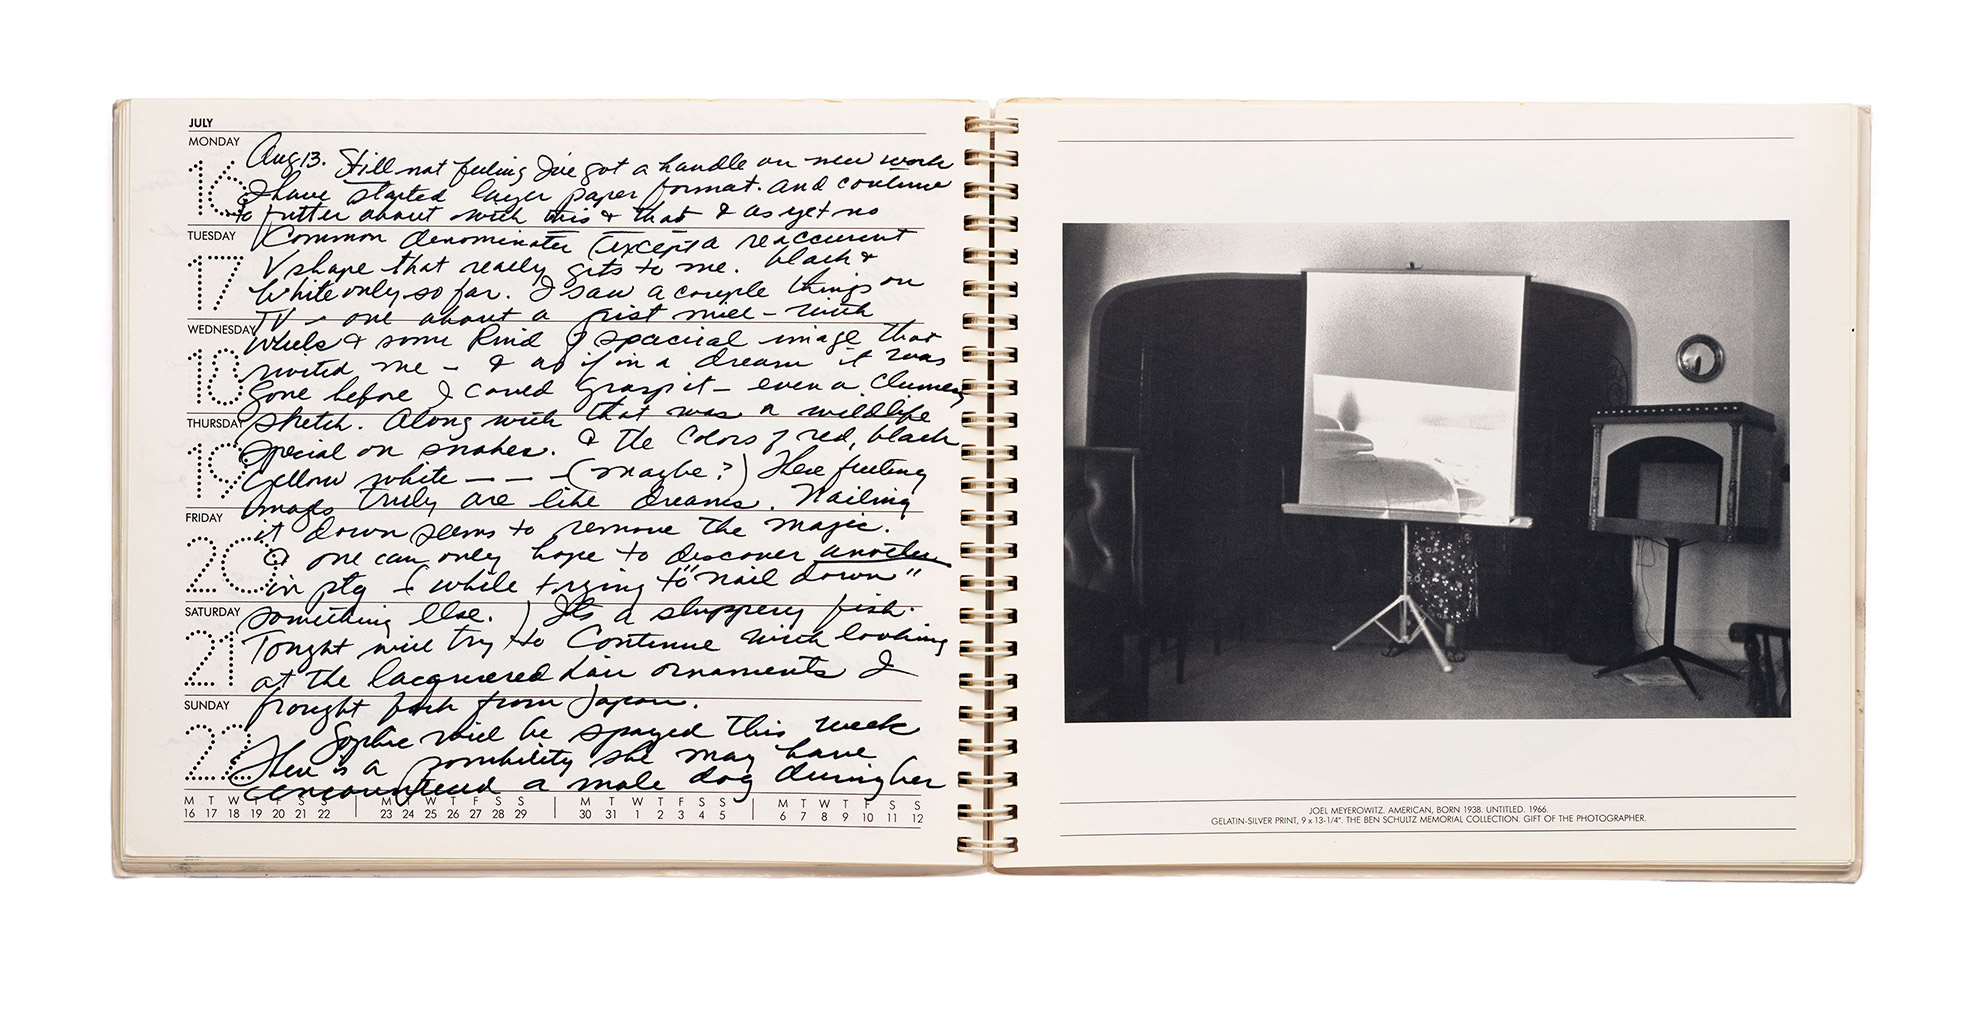 JULY
MONDAY
16
Aug 13. Still not feeling I've got a handle on new work
I have started larger paper format. and continue
to putter about with this & that & as yet no
TUESDAY
17
Common denominater (except a reaccurent
V shape that really gets to me. black &
White only so far. I saw a couple things on
TV - one about a grist mill - with
WEDNESDAY
18
wheels & some kind of spacial image that
rivited me - & as if in a dream it was
gone before I could grasp it - even a clumsy
sketch. Along with that was a wildlife
THURSDAY
19
special on snakes. & the colors of red, black
yellow white - - - (maybe?) These fleeting
images truly are like dreams. Nailing
FRIDAY
20
it down seems to remove the magic.
& one can only hope to discover another
in ptg - (while trying to "nail down"
SATURDAY
21
something else.) Its a slippery fish.
Tonght will try to Continue with looking
at the lacquered hair ornaments I
SUNDAY
22
brought back from Japan.
Sophie will be spayed this week
There is a possibility she may have
encountered a male dog during her
M T W T F S S M T W T F S S M T W T F S S M T W T F S S
16 17 18 19 20 21 22 23 24 25 26 27 28 29 30 31 1 2 3 4 5 6 7 8 9 10 11 12
JOEL MEYEROWITZ. AMERICAN, BORN 1938. UNTITLED. 1966.
GELATIN-SILVER PRINT, 9 x 13-1/4". THE BEN SCHULTZ MEMORIAL COLLECTION. GIFT OF THE PHOTOGRAPHER.